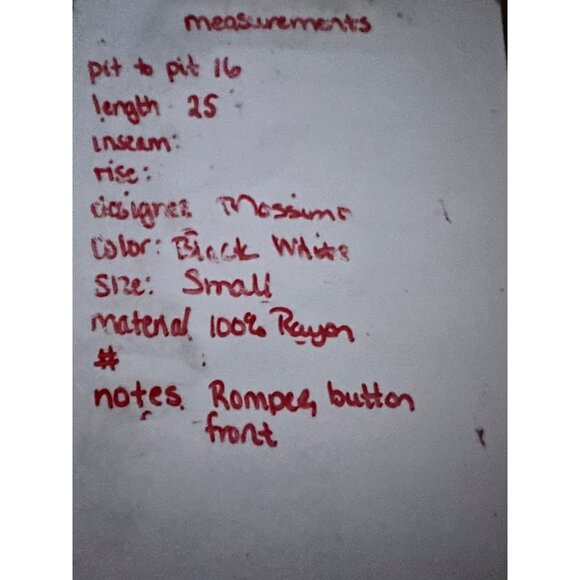 measurements
pit to pit 16
length 25
inseam:
rise:
designer Mossimo
Color: Black White
Size: Small
material 100% Rayon
#
notes. Romper, button
front